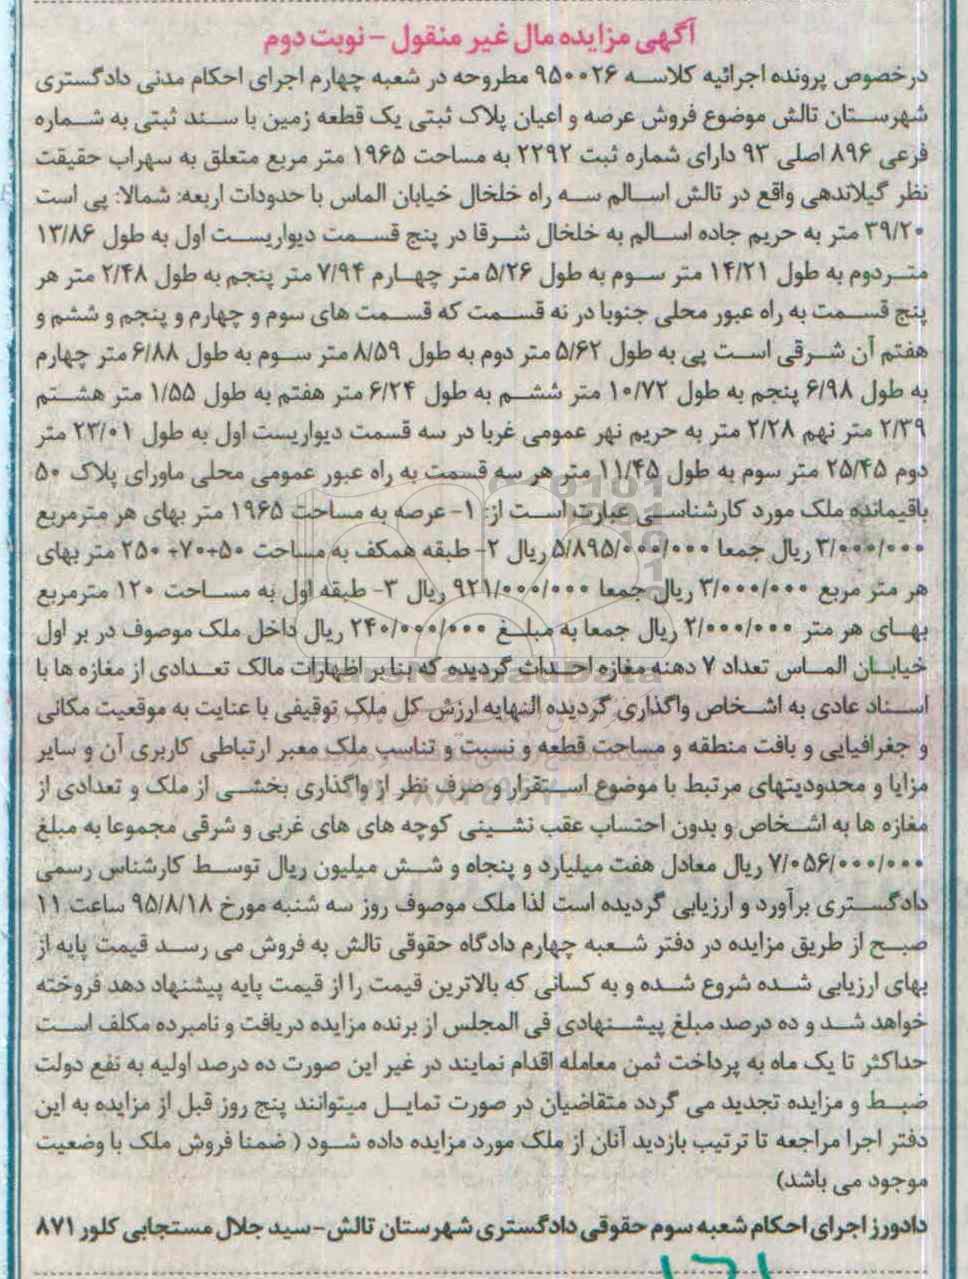 آگهی مزایده مال غیر منقول - نوبت دوم
درخصوص پرونده اجرائیه کلاسه ۹۵۰۰۲۶ مطروحه در شعبه چهارم اجرای احکام مدنی دادگستری
شهرستان تالش موضوع فروش عرصه و اعیان پلاک ثبتی یک قطعه زمین با سند ثبتی به شماره
فرعی ۸۹۶ اصلی ۹۳ دارای شماره ثبت ۲۲۹۲ به مساحت ۱۹۶۵ متر مربع متعلق به سهراب حقیقت
نظر گیلاندهی واقع در تالش اسالم سه راه خلخال خیابان الماس با حدودات اربعه: شمالا: پی است
۳۹/۲۰ متر به حریم جاده اسالم به خلخال شرقا در پنج قسمت دیواریست اول به طول ۱۳/۸۶
متردوم به طول ۱۴/۲۱ متر سوم به طول ۵/۲۶ متر چهارم ۷/۹۴ متر پنجم به طول ۲/۴۸ متر هر
پنج قسمت به راه عبور محلی جنوبا در نه قسمت که قسمت های سوم و چهارم و پنجم و ششم و
هفتم آن شرقی است پی به طول ۵/۶۲ متر دوم به طول ۸/۵۹ متر سوم به طول ۶/۸۸ متر چهارم
به طول ۶/۹۸ پنجم به طول ۱۰/۷۲ متر ششم به طول ۶/۲۴ متر هفتم به طول ۱/۵۵ متر هشتم
۲/۳۹ متر نهم ۲/۲۸ متر به حریم نهر عمومی غربا در سه قسمت دیواریست اول به طول ۲۳/۰۱ متر
دوم ۲۵/۴۵ متر سوم به طول ۱۱/۴۵ متر هر سه قسمت به راه عبور عمومی محلی ماورای پلاک ۵۰
باقیمانده ملک مورد کارشناسی عبارت است از: ۱- عرصه به مساحت ۱۹۶۵ متر بهای هر مترمربع
۳/۰۰۰/۰۰۰ ریال جمعا ۵/۸۹۵/۰۰۰/۰۰۰ ریال ۲- طبقه همکف به مساحت ۵۰+۷۰+ ۲۵۰ متر بهای
هر متر مربع ۳/۰۰۰/۰۰۰ ریال جمعا ۹۲۱/۰۰۰/۰۰۰ ریال ۳- طبقه اول به مساحت ۱۲۰ مترمربع
بهای هر متر ۲/۰۰۰/۰۰۰ ریال جمعا به مبلغ ۲۴۰/۰۰۰/۰۰۰ ریال داخل ملک موصوف در بر اول
خیابان الماس تعداد ۷ دهنه مغازه احداث گردیده که بنا بر اظهارات مالک تعدادی از مغازه ها با
اسناد عادی به اشخاص واگذاری گردیده النهایه ارزش کل ملک توقیفی با عنایت به موقعیت مکانی
و جغرافیایی و بافت منطقه و مساحت قطعه و نسبت و تناسب ملک معبر ارتباطی کاربری آن و سایر
مزایا و محدودیتهای مرتبط با موضوع استقرار و صرف نظر از واگذاری بخشی از ملک و تعدادی از
مغازه ها به اشخاص و بدون احتساب عقب نشینی کوچه های های غربی و شرقی مجموعا به مبلغ
۷/۰۵۶/۰۰۰/۰۰۰ ریال معادل هفت میلیارد و پنجاه و شش میلیون ریال توسط کارشناس رسمی
دادگستری برآورد و ارزیابی گردیده است لذا ملک موصوف روز سه شنبه مورخ ۹۵/۸/۱۸ ساعت ۱۱
صبح از طریق مزایده در دفتر شعبه چهارم دادگاه حقوقی تالش به فروش می رسد قیمت پایه از
بهای ارزیابی شده شروع شده و به کسانی که بالاترین قیمت را از قیمت پایه پیشنهاد دهد فروخته
خواهد شد و ده درصد مبلغ پیشنهادی فی المجلس از برنده مزایده دریافت و نامبرده مکلف است
حداکثر تا یک ماه به پرداخت ثمن معامله اقدام نمایند در غیر این صورت ده درصد اولیه به نفع دولت
ضبط و مزایده تجدید می گردد متقاضیان در صورت تمایل میتوانند پنج روز قبل از مزایده به این
دفتر اجرا مراجعه تا ترتیب بازدید آنان از ملک مورد مزایده داده شود ( ضمنا فروش ملک با وضعیت
موجود می باشد)
دادورز اجرای احکام شعبه سوم حقوقی دادگستری شهرستان تالش-سید جلال مستجابی کلور ۸۷۱